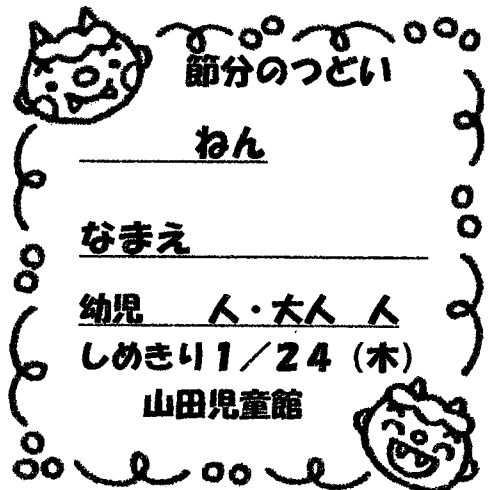 節分のつどい
ねん
なまえ
幼児　人・大人　人
しめきり１／２４（木）
山田児童館